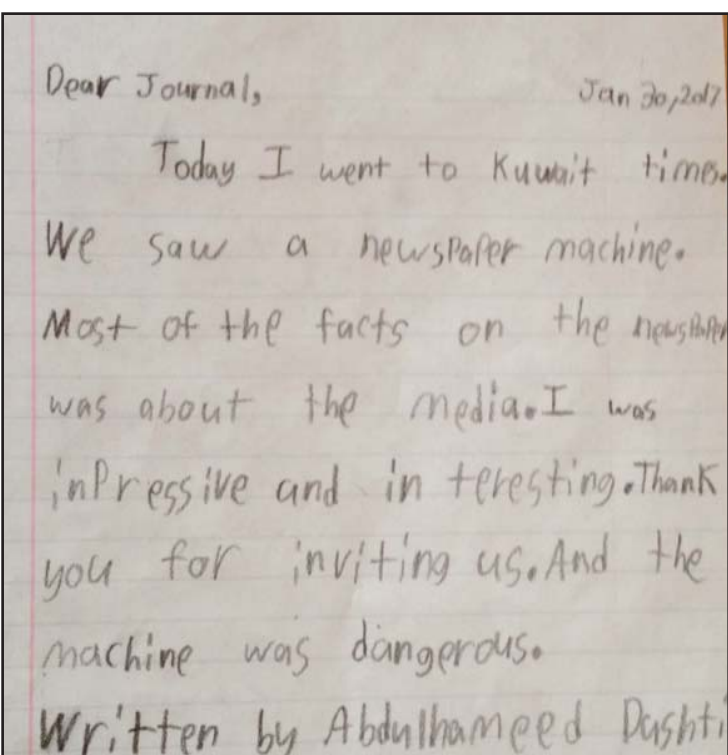 Dear Journal, Jan 30, 2017
Today I went to Kuwait times.
We saw a newspaper machine.
Most of the facts on the newspaper
was about the media. I was
inpressive and in teresting. Thank
you for inviting us. And the
machine was dangerous.
Written by Abdulhameed Dashti